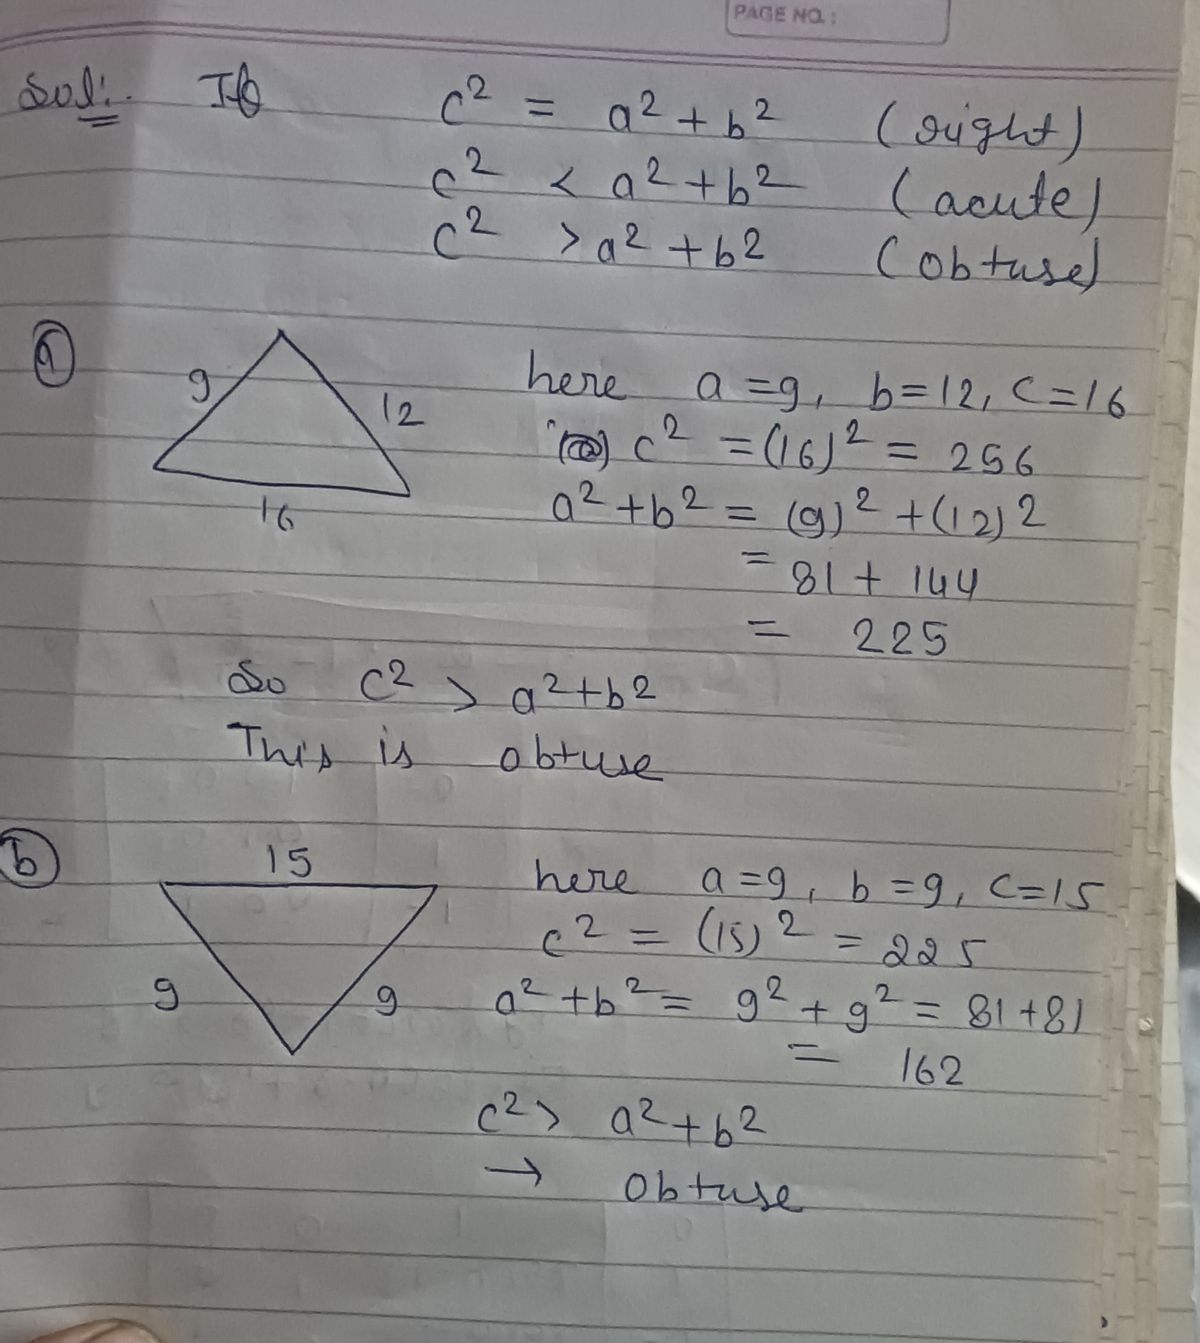 PAGE NO.:
Sol:. If c² = a² + b² (right)
c² < a² + b² (acute)
c² > a² + b² (obtuse)
9
12
16
here a = 9, b = 12, c = 16
c² = (16)² = 256
a² + b² = (9)² + (12)²
= 81 + 144
= 225
So c² > a² + b²
This is obtuse
b
15
9
9
here a = 9, b = 9, c = 15
c² = (15)² = 225
a² + b² = 9² + 9² = 81 + 81
= 162
c² > a² + b²
→ obtuse